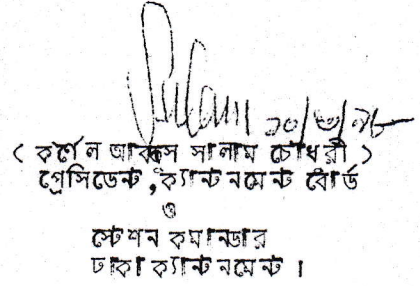 ১০/৩/৯৮
( কর্ণেল আব্দুস সালাম চৌধুরী )
প্রেসিডেন্ট, ক্যান্টনমেন্ট বোর্ড
ও
স্টেশন কমান্ডার
ঢাকা ক্যান্টনমেন্ট ।